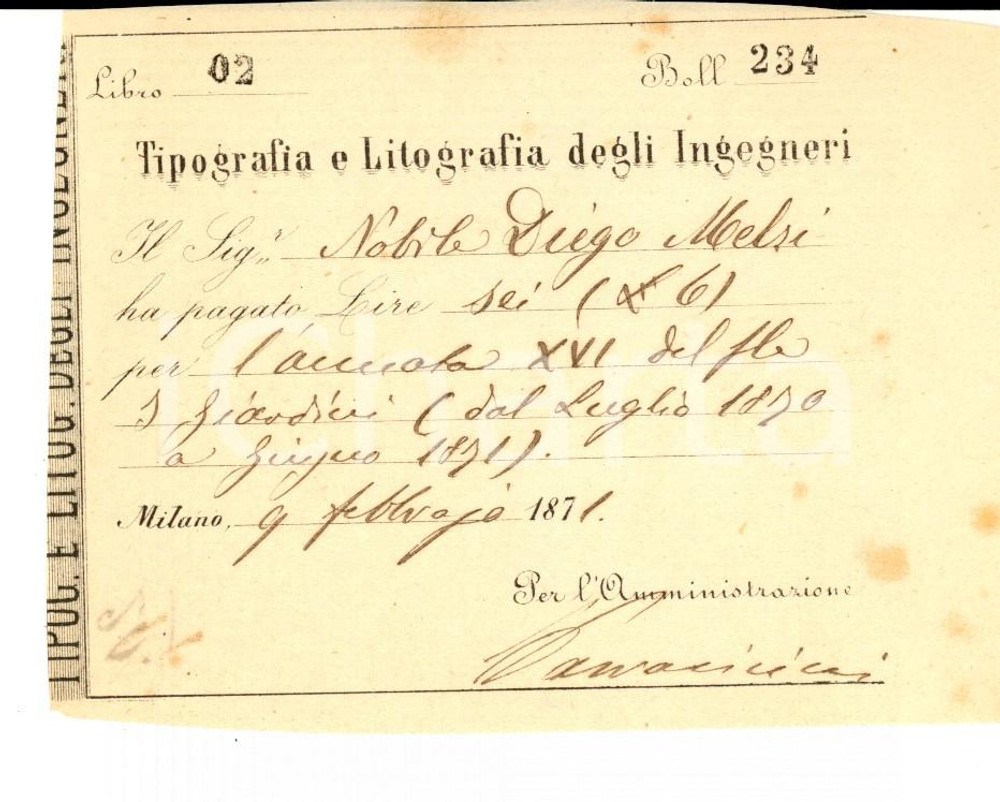 Libro 02 Boll 234
Tipografia e Litografia degli Ingegneri
Il Sig.r Nobile Diego Melzi
ha pagato Lire sei (£ 6)
per l'annata XVI del
I Giardini (dal Luglio 1870
a Giugno 1871).
Milano, 9 febbrajo 1871.
Per l'Amministrazione
TIPOG. E LITOG. DEGLI INGEGNERI